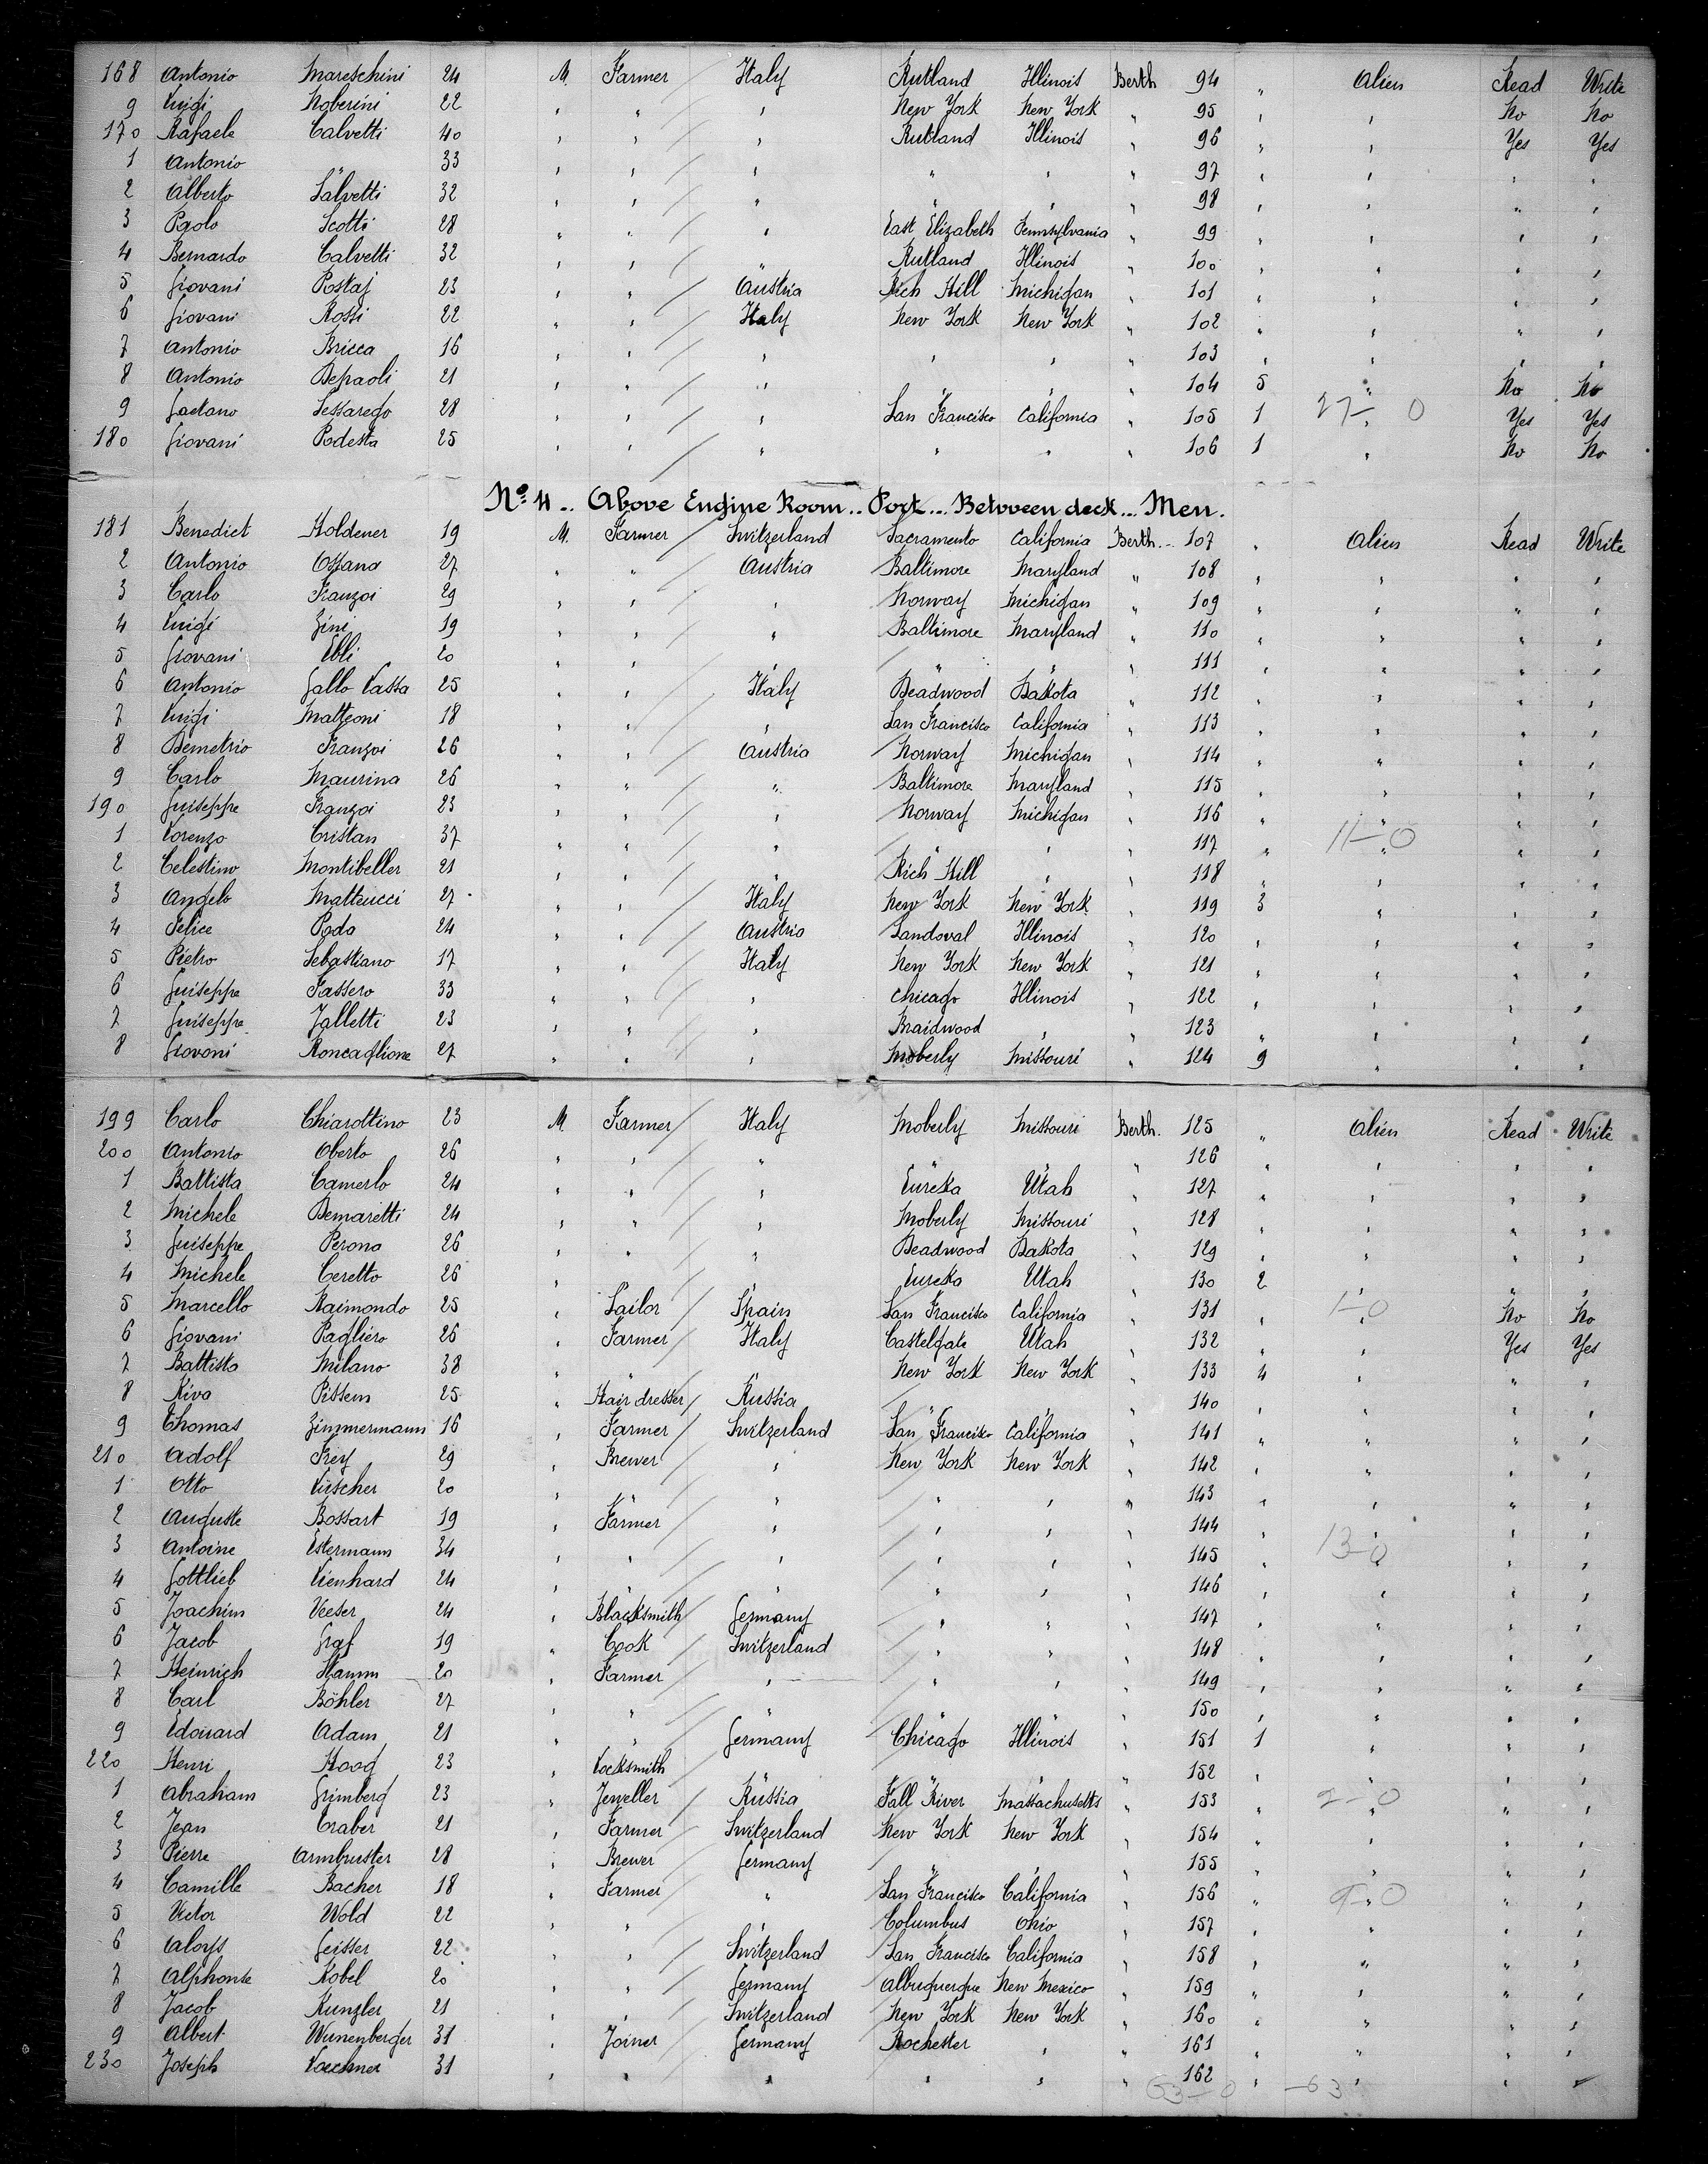 168 Antonio Mareschini 24 M. Farmer Italy Rutland Illinois Berth 94 " Alien Read Write
9 Luigi Noberini 22 " " " New York New York " 95 " " No No
170 Rafaele Calvetti 40 " " " Rutland Illinois " 96 " " Yes Yes
1 Antonio " 33 " " " " " " 97 " " " "
2 Alberto Salvetti 32 " " " " " " 98 " " " "
3 Paolo Scotti 28 " " " East Elizabeth Pennsylvania " 99 " " " "
4 Bernardo Calvetti 32 " " " Rutland Illinois " 100 " " " "
5 Giovani Postaj 23 " " Austria Rich Hill Michigan " 101 " " " "
6 Giovani Rossi 22 " " Italy New York New York " 102 " " " "
7 Antonio Bricca 16 " " " " " " 103 " " " "
8 Antonio Depaoli 21 " " " " " " 104 5 " No No
9 Gaetano Sessarego 28 " " " San Francisco California " 105 1 27-0 " Yes Yes
180 Giovani Podesta 25 " " " " " " 106 1 " No No
No. 4 .. Above Engine Room .. Port ... Between deck ... Men.
181 Benedict Holdener 19 M. Farmer Switzerland Sacramento California Berth 107 " Alien Read Write
2 Antonio Ossana 27 " " Austria Baltimore Maryland " 108 " " " "
3 Carlo Franzoi 29 " " " Norway Michigan " 109 " " " "
4 Luigi Zini 19 " " " Baltimore Maryland " 110 " " " "
5 Giovani Ebli 20 " " " " " " 111 " " " "
6 Antonio Gallo Lassa 25 " " Italy Deadwood Dakota " 112 " " " "
7 Luigi Matteoni 18 " " " San Francisco California " 113 " " " "
8 Demetrio Franzoi 26 " " Austria Norway Michigan " 114 " " " "
9 Carlo Maurina 26 " " " Baltimore Maryland " 115 " " " "
190 Guiseppe Franzoi 23 " " " Norway Michigan " 116 " " " "
1 Lorenzo Cristan 37 " " " " " " 117 " 11-0 " " "
2 Celestino Montibeller 21 " " " Rich Hill " " 118 " " " "
3 Angelo Matteucci 27 " " Italy New York New York " 119 3 " " "
4 Felice Poda 24 " " Austria Sandoval Illinois " 120 " " " "
5 Pietro Sebastiano 17 " " Italy New York New York " 121 " " " "
6 Guiseppe Fassero 33 " " " Chicago Illinois " 122 " " " "
7 Guiseppe Jalletti 23 " " " Braidwood " " 123 " " " "
8 Giovoni Roncaglione 27 " " " Moberly Missouri " 124 9 " " "
199 Carlo Chiarottino 23 M. Farmer Italy Moberly Missouri Berth. 125 " Alien Read Write
200 Antonio Oberto 26 " " " " " " 126 " " " "
1 Battista Camerlo 24 " " " Eureka Utah " 127 " " " "
2 Michele Demaretti 24 " " " Moberly Missouri " 128 " " " "
3 Guiseppe Perono 26 " " " Deadwood Dakota " 129 " " " "
4 Michele Ceretto 26 " " " Eureka Utah " 130 2 " " "
5 Marcello Raimondo 25 " Sailor Spain San Francisco California " 131 " 1-0 " No No
6 Giovani Pagliero 26 " Farmer Italy Castelgate Utah " 132 " " Yes Yes
7 Battista Milano 38 " " " New York New York " 133 4 " " "
8 Kiva Pissem 25 " Hair dresser Russia " " " 140 " " " "
9 Thomas Zimmermann 16 " Farmer Switzerland San Francisko California " 141 " " " "
210 Adolf Frey 29 " Brewer " New York New York " 142 " " " "
1 Otto Lüscher 20 " " " " " " 143 " " " "
2 Auguste Bossart 19 " Farmer " " " " 144 " " " "
3 Antoine Estermann 34 " " " " " " 145 " 13-0 " " "
4 Gottlieb Lienhard 24 " " " " " " 146 " " " "
5 Joachim Veeser 24 " Blacksmith Germany " " " 147 " " " "
6 Jacob Graf 19 " Cook Switzerland " " " 148 " " " "
7 Heinrich Hamm 20 " Farmer " " " " 149 " " " "
8 Carl Böhler 27 " " " " " " 150 " " " "
9 Edouard Adam 21 " " Germany Chicago Illinois " 151 1 " " "
220 Henri Haag 23 " Locksmith " " " " 152 " " " "
1 Abraham Grimberg 23 " Jeweller Russia Fall River Massachusetts " 153 " 2-0 " " "
2 Jean Traber 21 " Farmer Switzerland New York New York " 154 " " " "
3 Pierre Armbruster 28 " Brewer Germany " " " 155 " " " "
4 Camille Bacher 18 " Farmer " San Francisco California " 156 " 9-0 " " "
5 Victor Wold 22 " " " Columbus Ohio " 157 " " " "
6 Aloys Geisser 22 " " Switzerland San Francisco California " 158 " " " "
7 Alphonse Kobel 20 " " Germany Albuquerque New Mexico " 159 " " " "
8 Jacob Kunzler 21 " " Switzerland New York New York " 160 " " " "
9 Albert Wunenberger 31 " Joiner Germany Rochester " " 161 " " " "
230 Joseph 31 " " " " " " 162 " " " "
63-0 -63